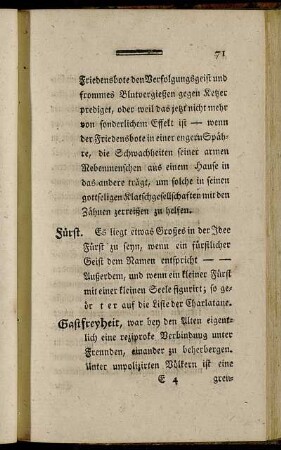 71
Friedensbote den Verfolgungsgeist und
frommes Blutvergießen gegen Ketzer
prediget, oder weil das jetzt nicht mehr
von sonderlichem Effekt ist — wenn
der Friedensbote in einer engern Spähre,
die Schwachheiten seiner armen
Nebenmenschen aus einem Hause in
das andere trägt, um solche in seinen
gottseligen Klatschgesellschaften mit den
Zähnen zerreißen zu helfen.
Fürst. Es liegt etwas Großes in der Idee
Fürst zu seyn, wenn ein fürstlicher
Geist dem Namen entspricht — —
Außerdem, und wenn ein kleiner Fürst
mit einer kleinen Seele figurirt; so ge-
ört er auf die Liste der Charlatane.
Gastfreyheit, war bey den Alten eigent-
lich eine reziproke Verbindung unter
Freunden, einander zu beherbergen.
Unter unpolizirten Völkern ist eine
E 4 gren-